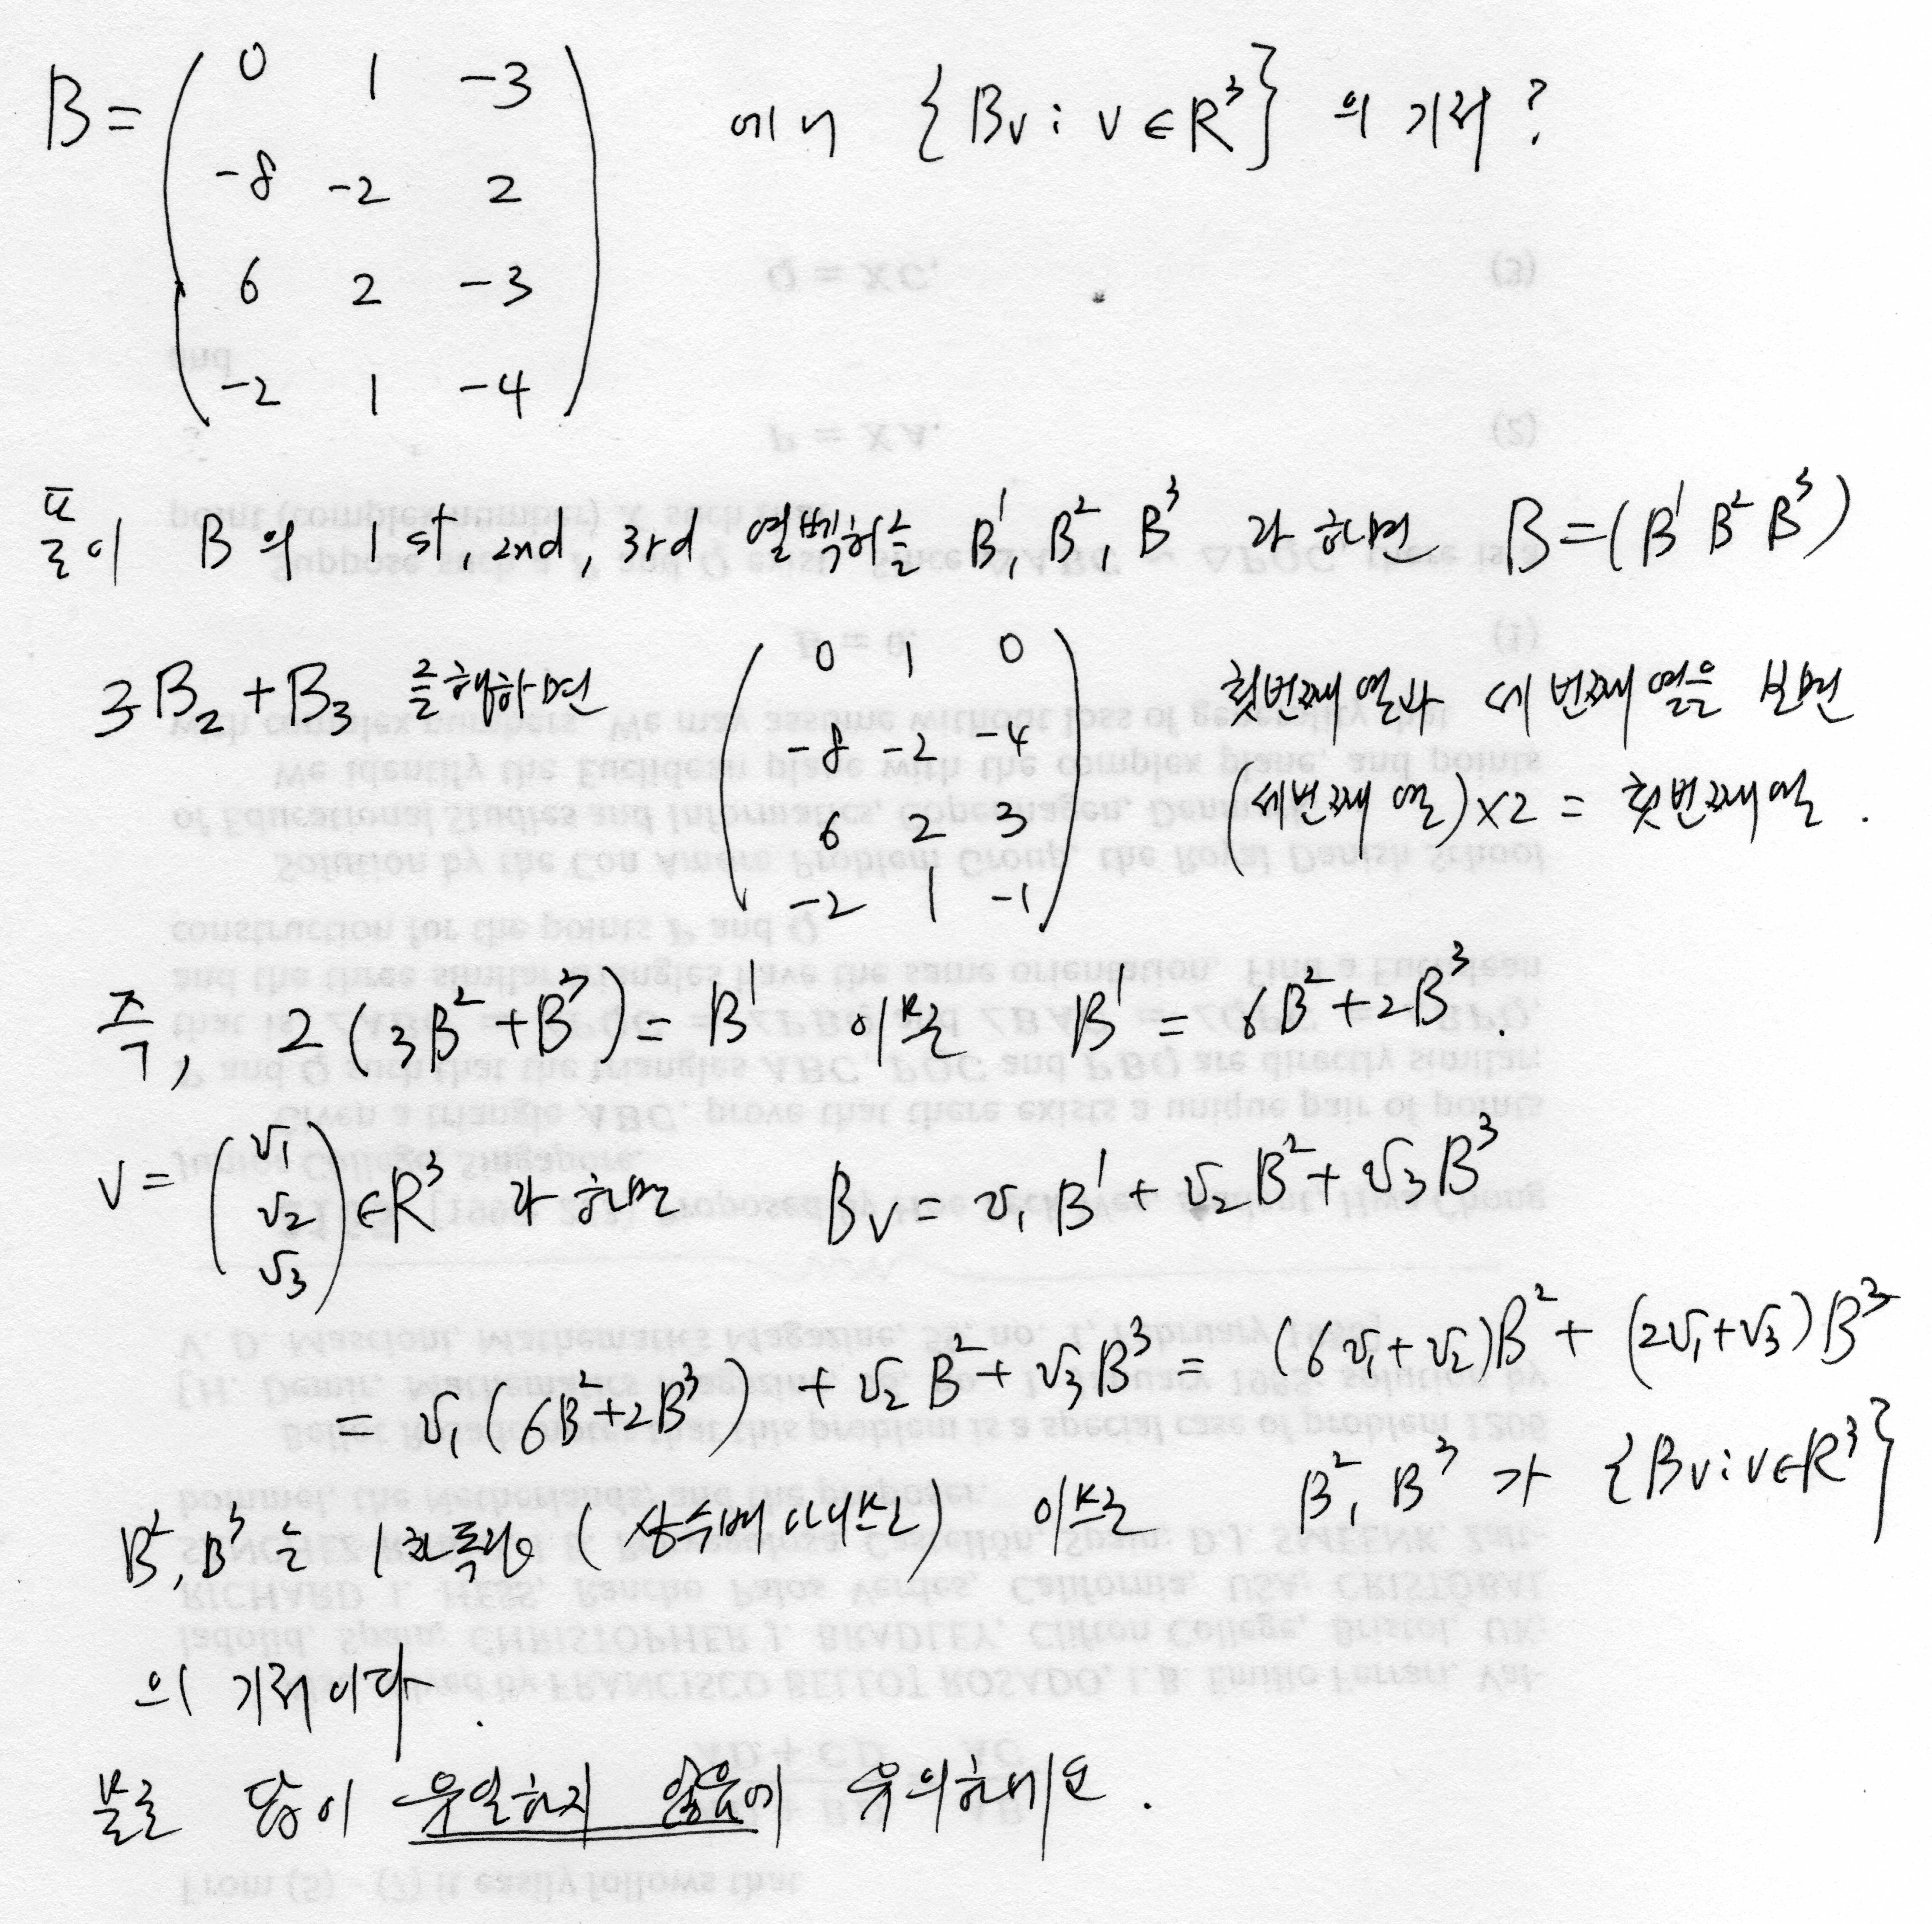 B = ( 0 1 -3 에서 {Bv : v ∈ R³} 의 기저 ?
-8 -2 2
6 2 -3
-2 1 -4 )
풀이 B의 1st, 2nd, 3rd 열벡터를 B¹, B², B³ 라 하면 B = (B¹ B² B³)
3B₂ + B₃ 를 행하면 ( 0 1 0 첫번째 열과 세번째 열을 보면
-8 -2 -4
6 2 3 (세번째 열)×2 = 첫번째 열.
-2 1 -1 )
즉, 2(3B² + B³) = B¹ 이므로 B¹ = 6B² + 2B³.
v = ( v₁ v₂ v₃ ) ∈ R³ 라 하면 Bv = v₁B¹ + v₂B² + v₃B³
= v₁(6B² + 2B³) + v₂B² + v₃B³ = (6v₁ + v₂)B² + (2v₁ + v₃)B³
B², B³는 1차독립 (상수배 아니므로) 이므로 B², B³ 가 {Bv : v ∈ R³}
의 기저이다.
물론 답이 유일하지 않음에 유의하세요.